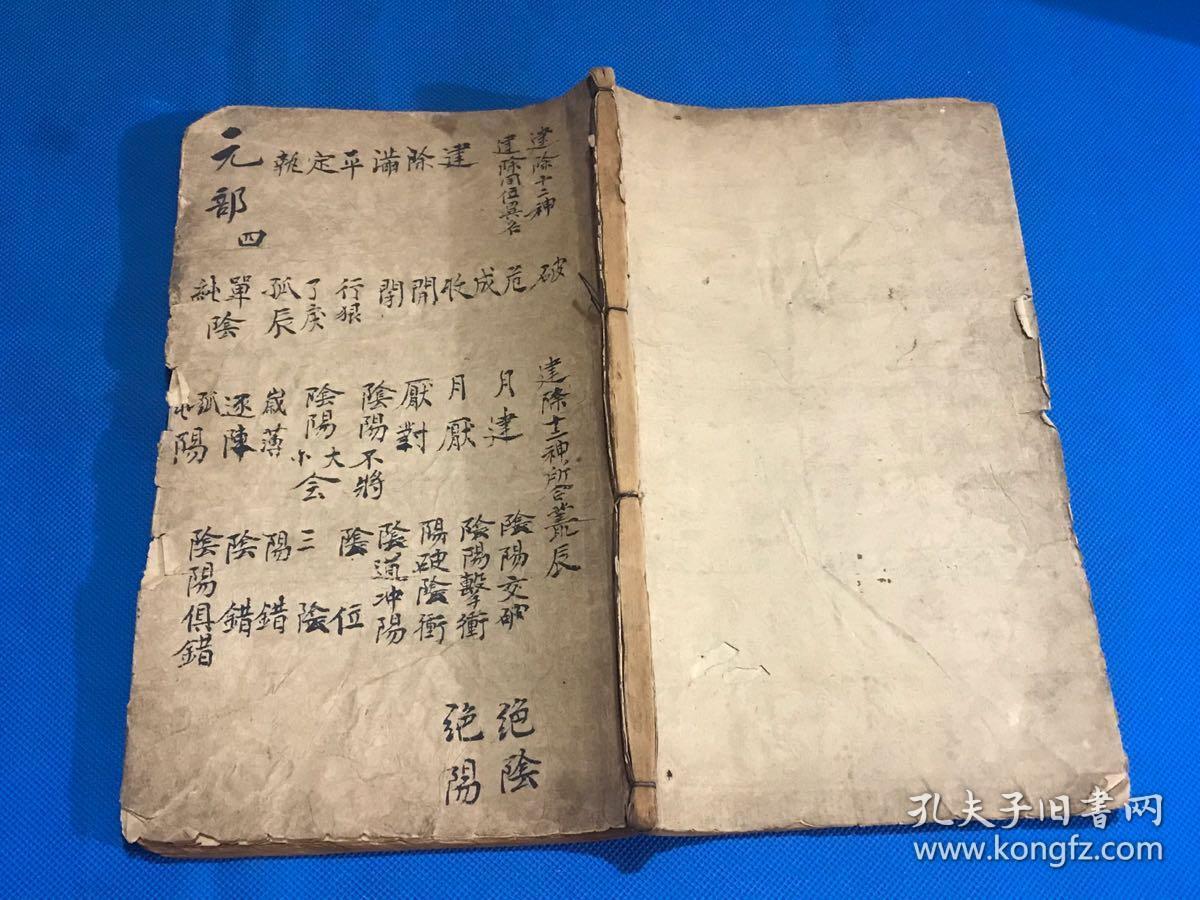 建除十二神
建除同位異名
建
除
滿
平
定
執
元部 四
破
危
成
收
開
閉
行狠
了戾
孤辰
單陰
純
建除十二神所合叢辰
月建
月厭
厭對
陰陽不將
陰陽大小会
歲薄
逐陣
孤
陽
陰陽交破
陰陽擊衝
陽破陰衝
陰道冲陽
陰位
三陰
陽錯
陰錯
陰陽俱錯
绝陰
绝陽
孔夫子旧书网
www.kongfz.com